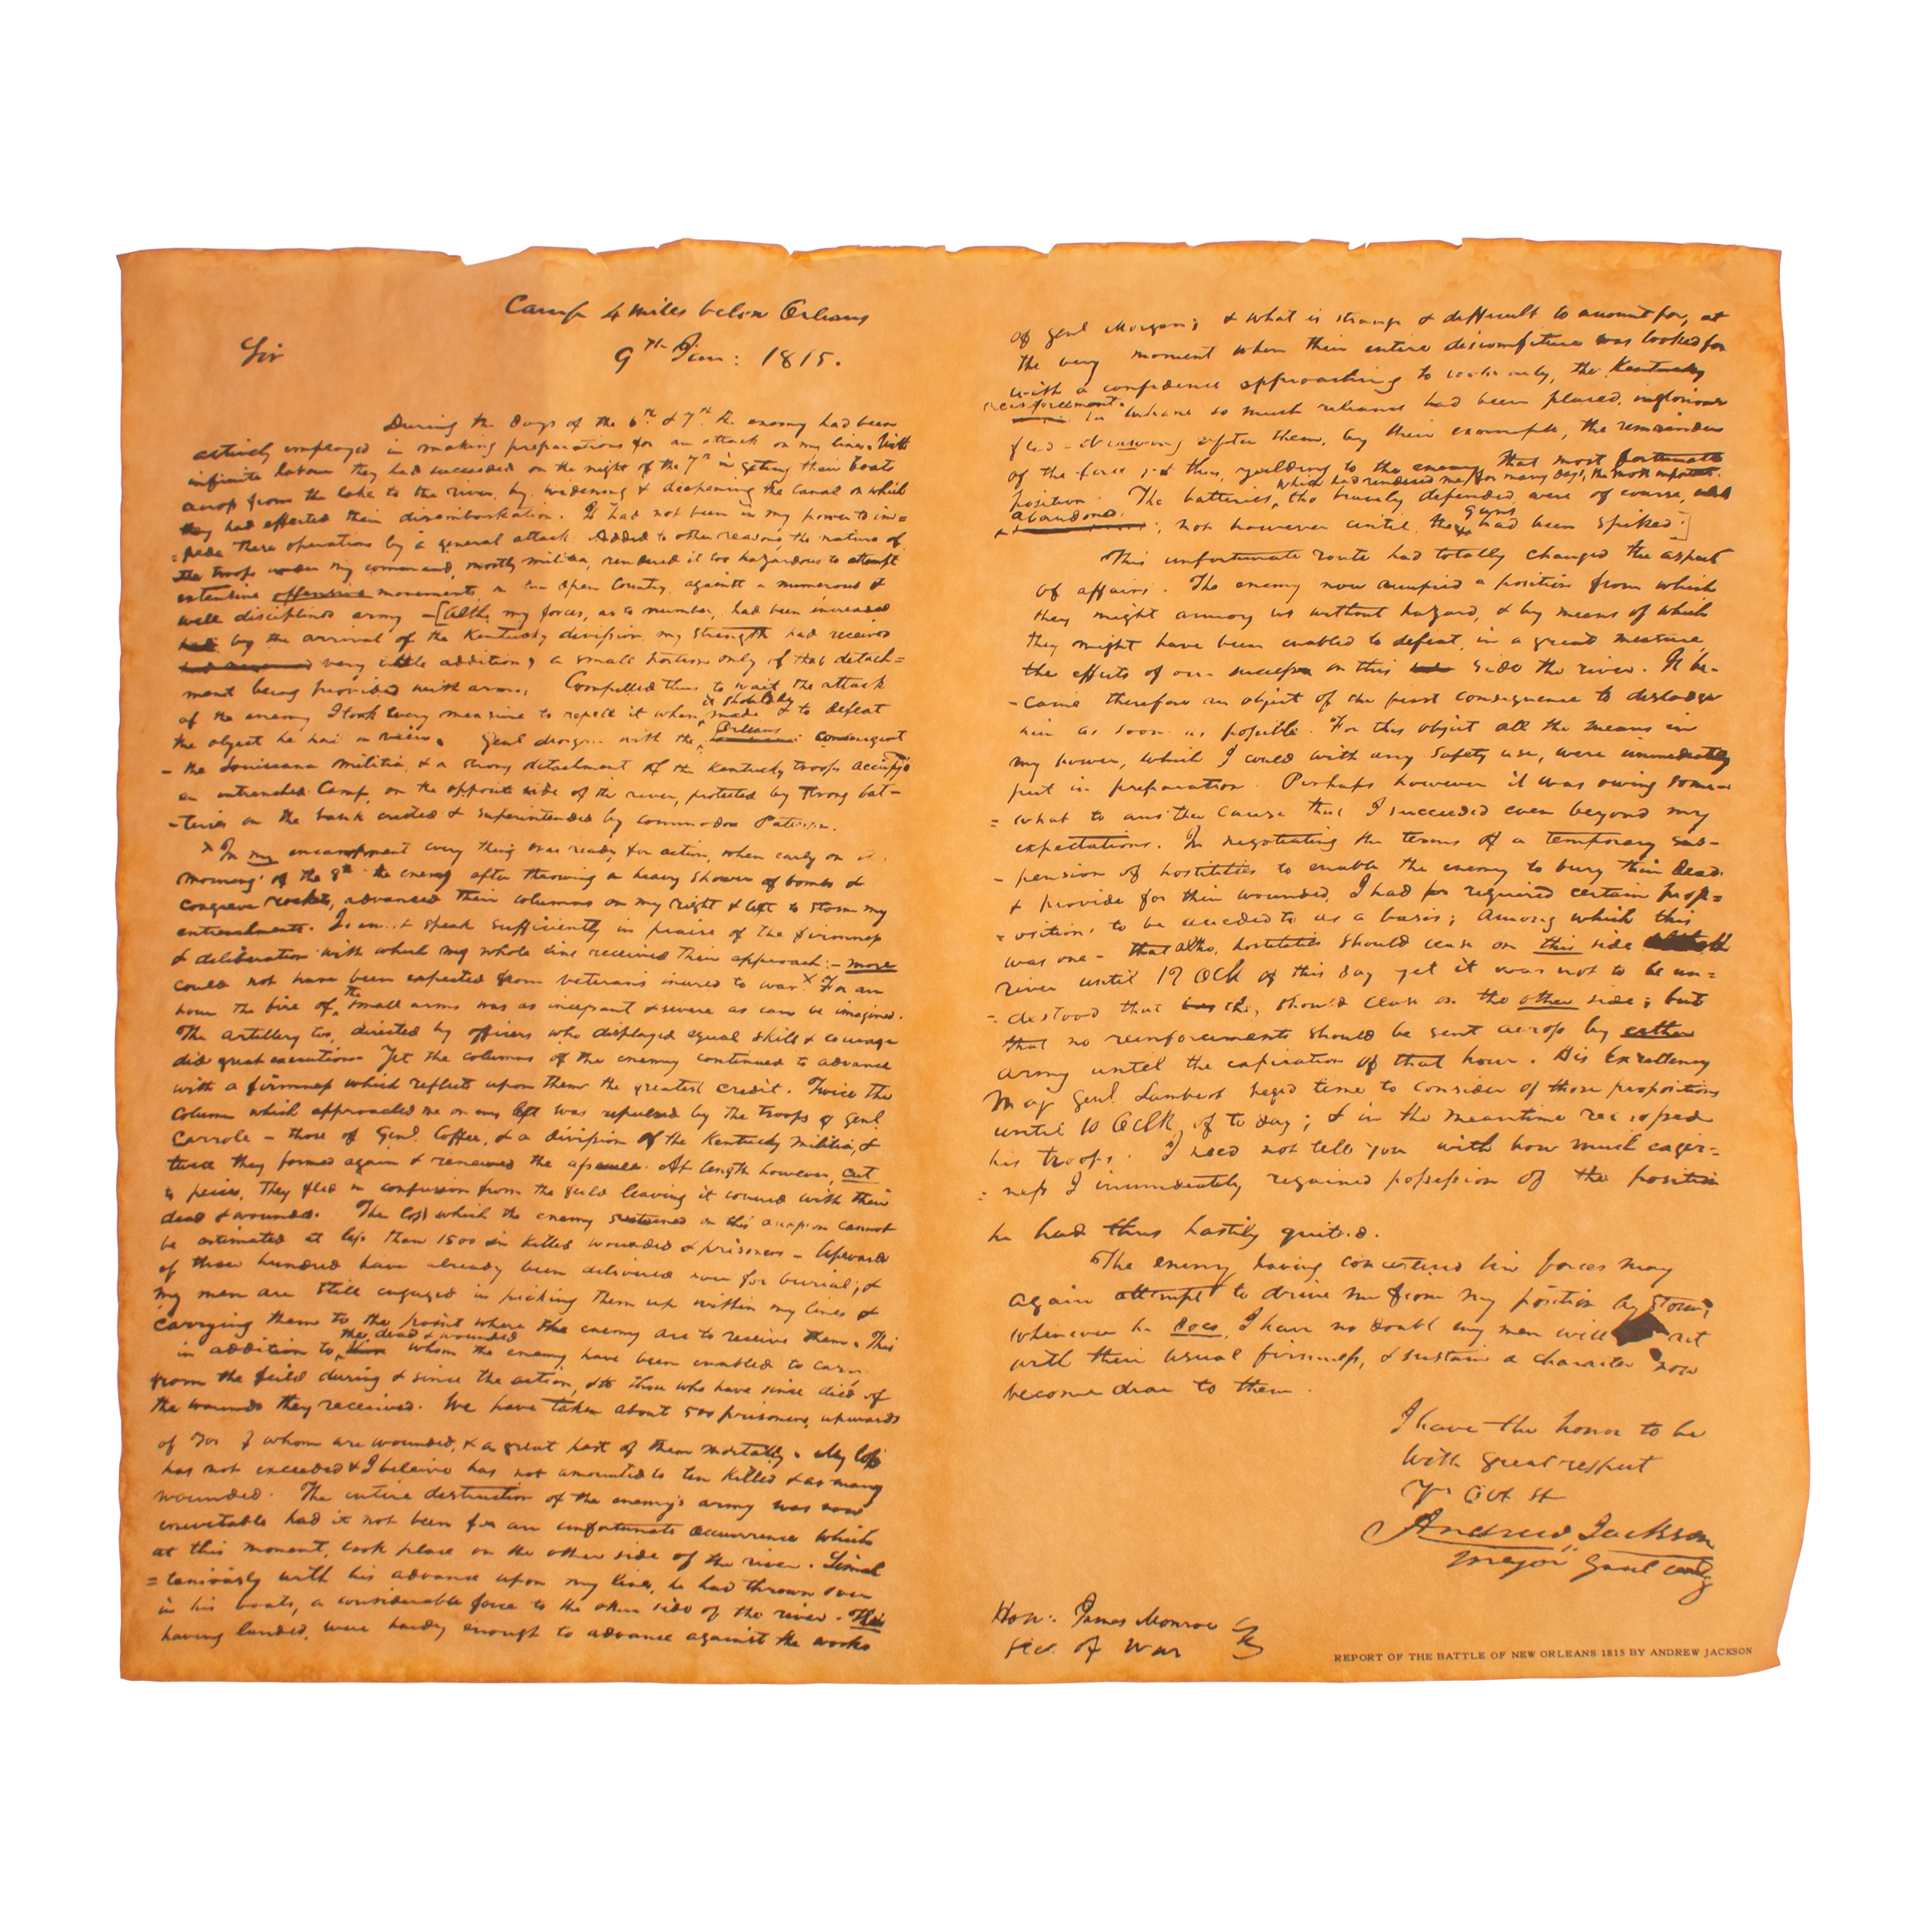 Camp 4 miles below Orleans
Sir
9th Jan: 1815.
During the days of the 6th & 7th the enemy had been
actively employed in making preparations for an attack on my lines. With
infinite labour they had succeeded on the night of the 7th in geting their boats
across from the lake to the river, by widening & deepening the canal on which
they had effected their disembarkation. It had not been in my power to im=
=pede these operations by a general attack. Added to other reasons, the nature of
the troops under my command, mostly militia, rendered it too hazardous to attempt
extensive offensive movements, in an open County, against a numerous &
well disciplined army - [Altho my forces, as to number, had been increased
by the arrival of the Kentucky division, my strength had received
very little addition; a small portion only of that detach=
ment being provided with arms. Compelled thus to wait the attack
of the enemy I took every measure to repell it when it should be made & to defeat
the object he had in view. Genl Morgan with the Orleans contingent
- the Louisiana Militia, & a strong detachment of the Kentucky troops occupyd
an entrenched Camp, on the opposite side of the river, protected by strong bat-
-teries on the bank erected & superintended by Commodore Patterson.
x In my encampment every thing was ready for action, when early on
morning of the 8th the enemy after throwing a heavy shower of bombs &
congreve rockets, advanced their columns on my right & left to storm my
entrenchments. I cannot speak sufficiently in praise of the firmness
& deliberation with which my whole line received their approach:- more
could not have been expected from veterans inured to war. x For an
hour the fire of the small arms was as incessant & severe as can be imagined.
The artillery too, directed by officers who displayed equal skill & courage
did great execution. Yet the columns of the enemy continued to advance
with a firmness which reflects upon them the greatest credit. Twice the
column which approached me on my left was repulsed by the troops of Genl.
Carrole - those of Genl. Coffee, & a division of the Kentucky militia, &
twice they formed again & renewed the assault. At length however, cut
to peices, they fled in confusion from the feild leaving it covered with their
dead & wounded. The loss which the enemy sustained on this occasion cannot
be estimated at less than 1500 in killed wounded & prisoners - Upwards
of three hundred have already been delivered over for burial; &
my men are still engaged in picking them up within my lines &
carrying them to the point where the enemy are to receive them. This
in addition to the dead & wounded whom the enemy have been enabled to carry
from the feild during & since the action, & to those who have since died of
the wounds they received. We have taken about 500 prisoners, upwards
of 300 of whom are wounded, & a great part of them mortally. My loss
has not exceeded & I beleive has not amounted to ten killed & as many
wounded. The entire destruction of the enemy's army was now
inevitable had it not been for an unfortunate occurrence which
at this moment, took place on the other side of the river. Simul
=taniously with his advance upon my lines, he had thrown over
in his boats, a considerable force to the other side of the river. These
having landed, were hardy enough to advance against the works
of genl Morgan; & what is strange & difficult to account for, at
the very moment when their entire discomfiture was looked for
with a confidence approaching to certainty, the Kentucky
reinforcements in whom so much reliance had been placed, ingloriously
fled - drawing after them, by their example, the remainder
of the force; & thus, yeilding to the enemy that most fortunate
which had rendered me, for many days, the most important
position. The batteries, tho bravely defended, were of course,
abandoned; not however until the guns had been spiked.]
This unfortunate route had totally changed the aspect
of affairs. The enemy now occupied a position from which
they might annoy us without hazard, & by means of which
they might have been enabled to defeat, in a great measure,
the effects of our success on this side the river. It be-
-came therefore an object of the first consequence to dislodge
him as soon as possible. For this object all the means in
my power, which I could with any safety use, were immediately
put in preparation. Perhaps however it was owing some=
=what to another cause that I succeeded even beyond my
expectations. In negotiating the terms of a temporary sus-
-pension of hostilities to enable the enemy to bury their dead
& provide for their wounded, I had required certain prop=
=ositions to be acceded to as a basis; among which this
was one - that altho, hostilities should cease on this side
river until 12 Ock of this day yet it was not to be un=
-derstood that they should cease on the other side; but
that no reinforcements should be sent across by either
army until the expiration of that hour. His Excellency
Maj Genl. Lambert beged time to consider of those propositions
until 10 Oclk of to day; & in the meantime recrossed
his troops. I need not tell you with how much eager=
=ness I immediately regained possession of the position
he had thus hastily quited.
The enemy having concentered his forces may
again attempt to drive me from my position by storm;
whenever he does, I have no doubt my men will act
with their usual firmness, & sustain a character now
become dear to them.
I have the honor to be
With great respect
Yr Obt St
Andrew Jackson
Major Genl comdg
Hon: James Monroe
Sec. of War
REPORT OF THE BATTLE OF NEW ORLEANS 1815 BY ANDREW JACKSON